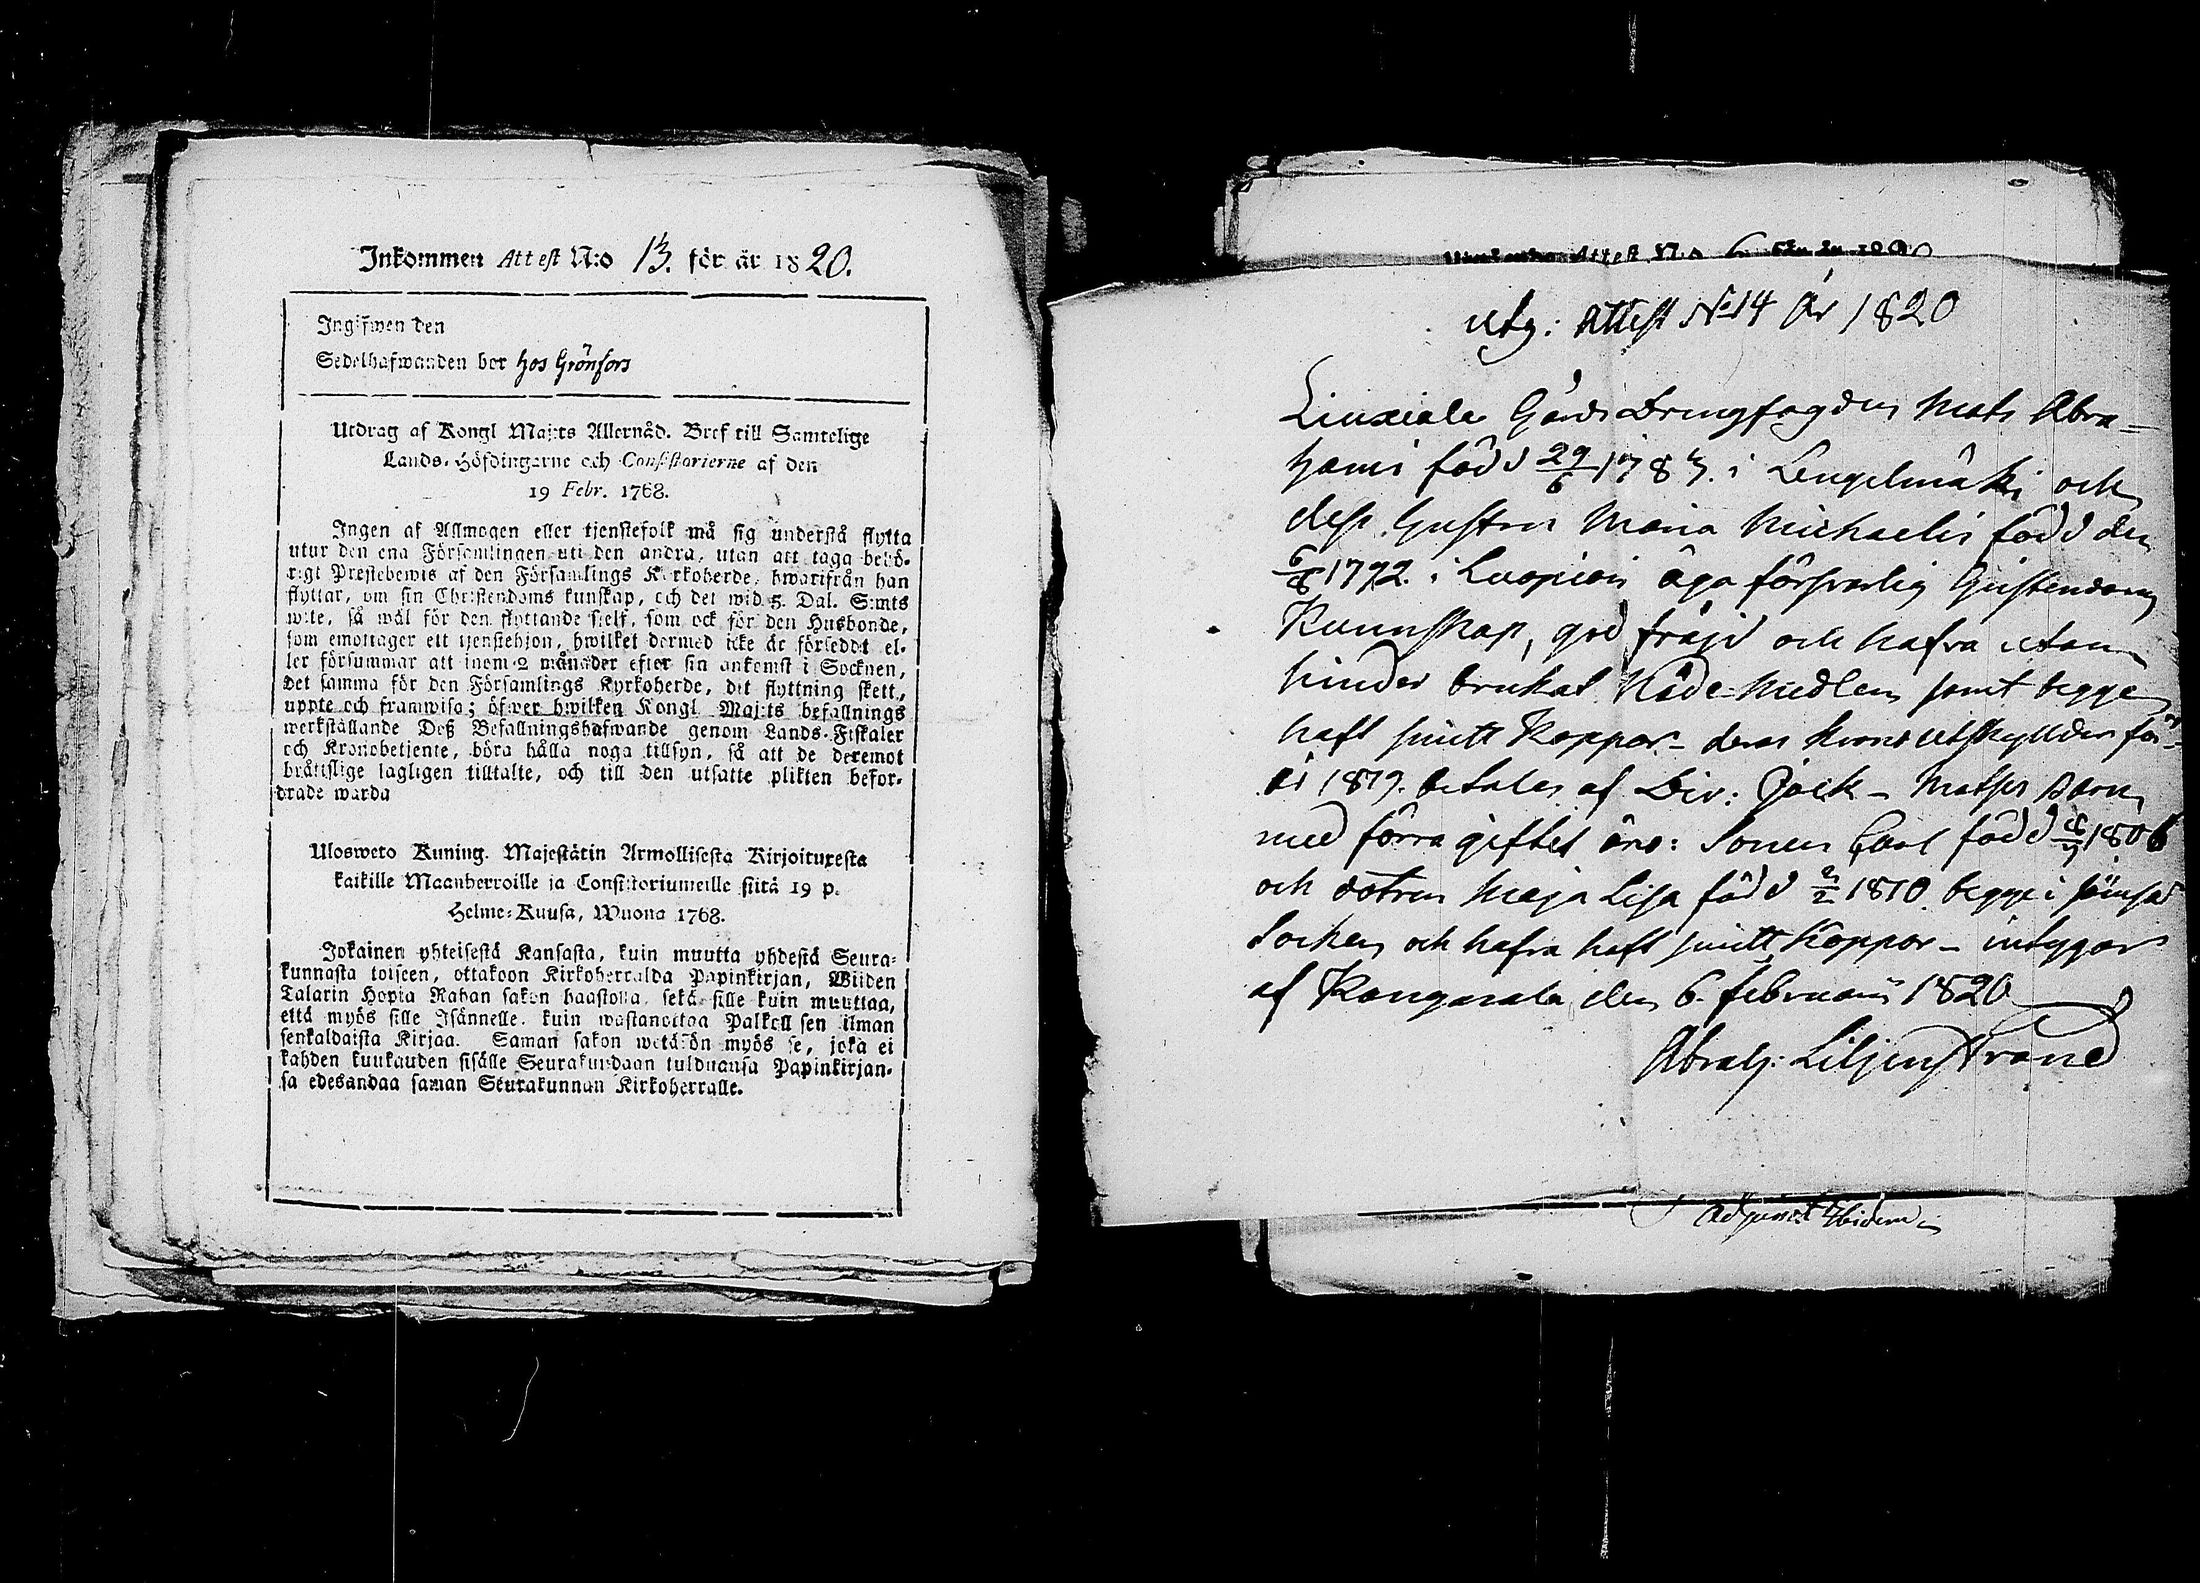 Inkommen Attest N:o 13. för år 1820.
Ingifwen den
Sedelhafwanden bor hos Grönfors
Utdrag af Kongl Maj:ts Allernåd. Bref till Samtelige
Lands-Höfdingarne och Consistorierne af den
19 Febr. 1768.
Ingen af Allmogen eller tjenstefolk må sig understå flytta
utur den ena Församlingen uti den andra, utan att taga behö-
rigt Prestebewis af den Församlings Kyrkoherde, hwarifrån han
flyttar, om sin Christendoms kunskap, och det wid 5. Dal. S:mts
wite, så wäl för den flyttande sielf, som ock för den Husbonde,
som emottager ett tjenstehjon, hwilket dermed icke är förseddt el-
ler försummar att inom 2 månader efter sin ankomst i Socknen,
det samma för den Församlings Kyrkoherde, dit flyttning skett,
uppte och framwisa; öfwer hwilken Kongl Maj:ts befallnings
werkställande Deß Befallningshafwande genom Lands-Fiskaler
och Kronobetjente, böra hålla noga tillsyn, så att de deremot
bråtislige lagligen tilltalte, och till den utsatte plikten befor-
drade warda
Ulosweto Kuning. Majestätin Armollisesta Kirjoituxesta
kaikille Maanherroille ja Consistoriumeille siitä 19 p.
Helme-Kuusa, Wuona 1768.
Jokainen yhteisestä Kansasta, kuin muutta yhdestä Seura-
kunnasta toiseen, ottakoon Kirkoherralda Papinkirjan, Wiiden
Talarin Hopia Rahan sakon haastolla, sekä sille kuin muuttaa,
että myös sille Isännelle, kuin wastanottaa Palkollisen ilman
senkaldaista Kirjaa. Saman sakon wetäkön myös se, joka ei
kahden kuukauden sisälle Seurakundaan tulduansa Papinkirjan-
sa edesandaa saman Seurakunnan Kirkoherralle.
Utg: Attest No 14 År 1820
Liuxiala Gårds Drengfogden Mats Abra-
hams född 29/6 1787. i Lengelmäki och
dess Hustru Maria Michaelis född den
6/8 1792. i Luopiois äga försvarlig Christendoms
Kunnskap, god fräjd och hafva utan
hinder brukat Nåde Medlen samt begge
haft smitt Koppor - deras Krono utskylder för
år 1819. betalas af Div: Jack - Matses Barn
med förra giftet äro: Sonen Carl född 1806
och dottren Maja Lisa född 1810 begge i Jämsä
Socken och hafva haft smitt Koppor - intygar
af Kangasala den 6. februarii 1820
Abrah: Liljenstrand
Adjunct Ibidem